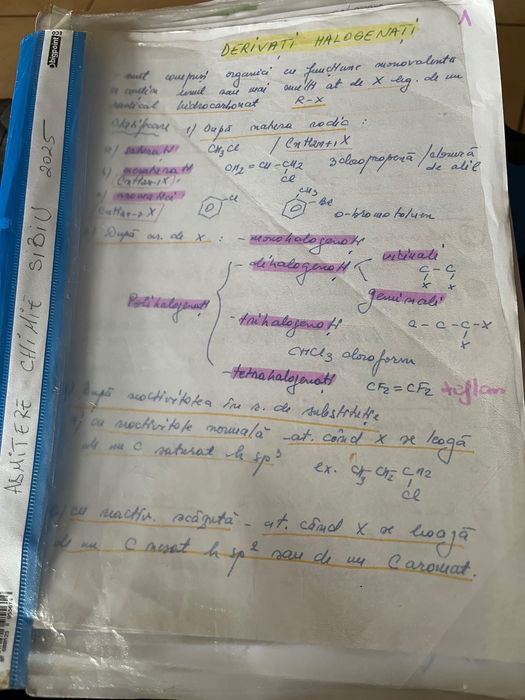 1
DERIVAȚI HALOGENAȚI
- sunt compuși organici cu funcțiune monovalentă
ce conțin unul sau mai multi at de X leg. de un
radical hidrocarbonat R-X
Clasificare 1) După natura radic :
a) saturați CH3Cl / CnH2n+1X
b) nesaturați CH2 = CH - CH2 3 cloropropenă / clorură
(CnH2n-1X) Cl de alil
c) aromatici Cl CH3
CnH2n-7X Br o-bromotoluen
2) După nr. de X : - monohalogenați
- dihalogenați vicinali
C - C
X X
geminali
Polihalogenați
- trihalogenați C - C - C - X
X
CHCl3 cloroform
- tetrahalogenați CF2 = CF2 teflon
3) După reactivitatea în r. de substituție
a) cu reactivitate normală - at. când X se leagă
de un C saturat h sp3
ex. CH3 CH2 CH2
Cl
b) cu reactiv. scăzută - at. când X se leagă
de un C nesat h sp2 sau de un C aromat.
ADMITERE CHIMIE SIBIU 2025